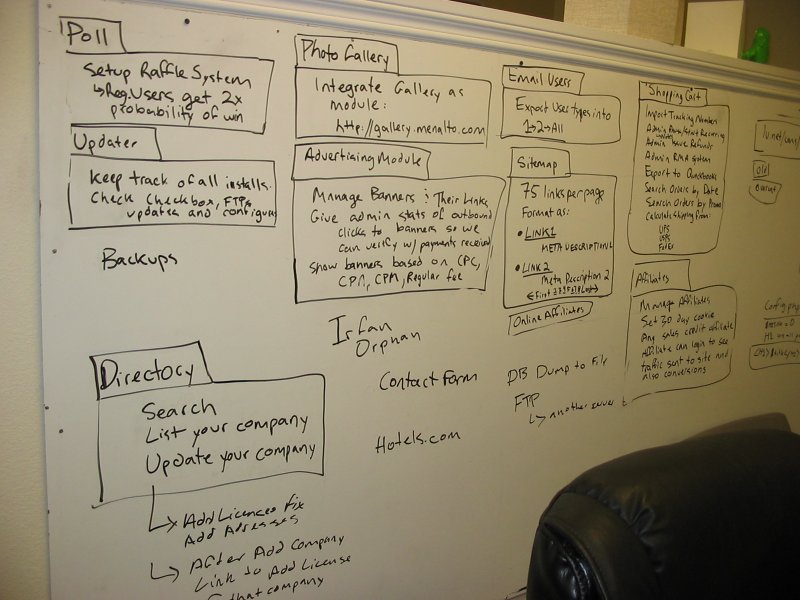 Poll
Setup Raffle System
↳Reg.Users get 2x
probability of win
Updater
Keep track of all installs.
Check checkbox, FTPs
updates and configures
Backups
Directory
Search
List your company
Update your company
↳ Add Licenses fix
Add Adresses
↳ After Add Company
Link to Add License
that company
Photo Gallery
Integrate Gallery as
module:
http://gallery.menalto.com
Advertising Module
Manage Banners : Their Links
Give admin stats of outbound
clicks to banners so we
can verify w/ payments received
Show banners based on CPC,
CPA, CPM, Regular fee
Irfan
Orphan
Contact Form
Hotels.com
Email Users
Export User types into
1→2→All
Sitemap
75 links per page
Format as:
• LINK1
META DESCRIPTION1
• LINK2
Meta Description 2
Online Affiliates
DB Dump to File
FTP
↳ another server
Shopping Cart
Import Tracking Numbers
Admin Start Recurring
Admin Issue Refunds
Admin RMA system
Export to Quickbooks
Search Orders by Date
Search Orders by
Calculate shipping from:
UPS
USPS
FedEx
Affiliates
Manage Affiliates
Set 30 day cookie
Any sales credit affiliate
Affiliate can login to see
traffic sent to site and
also conversions
old
current